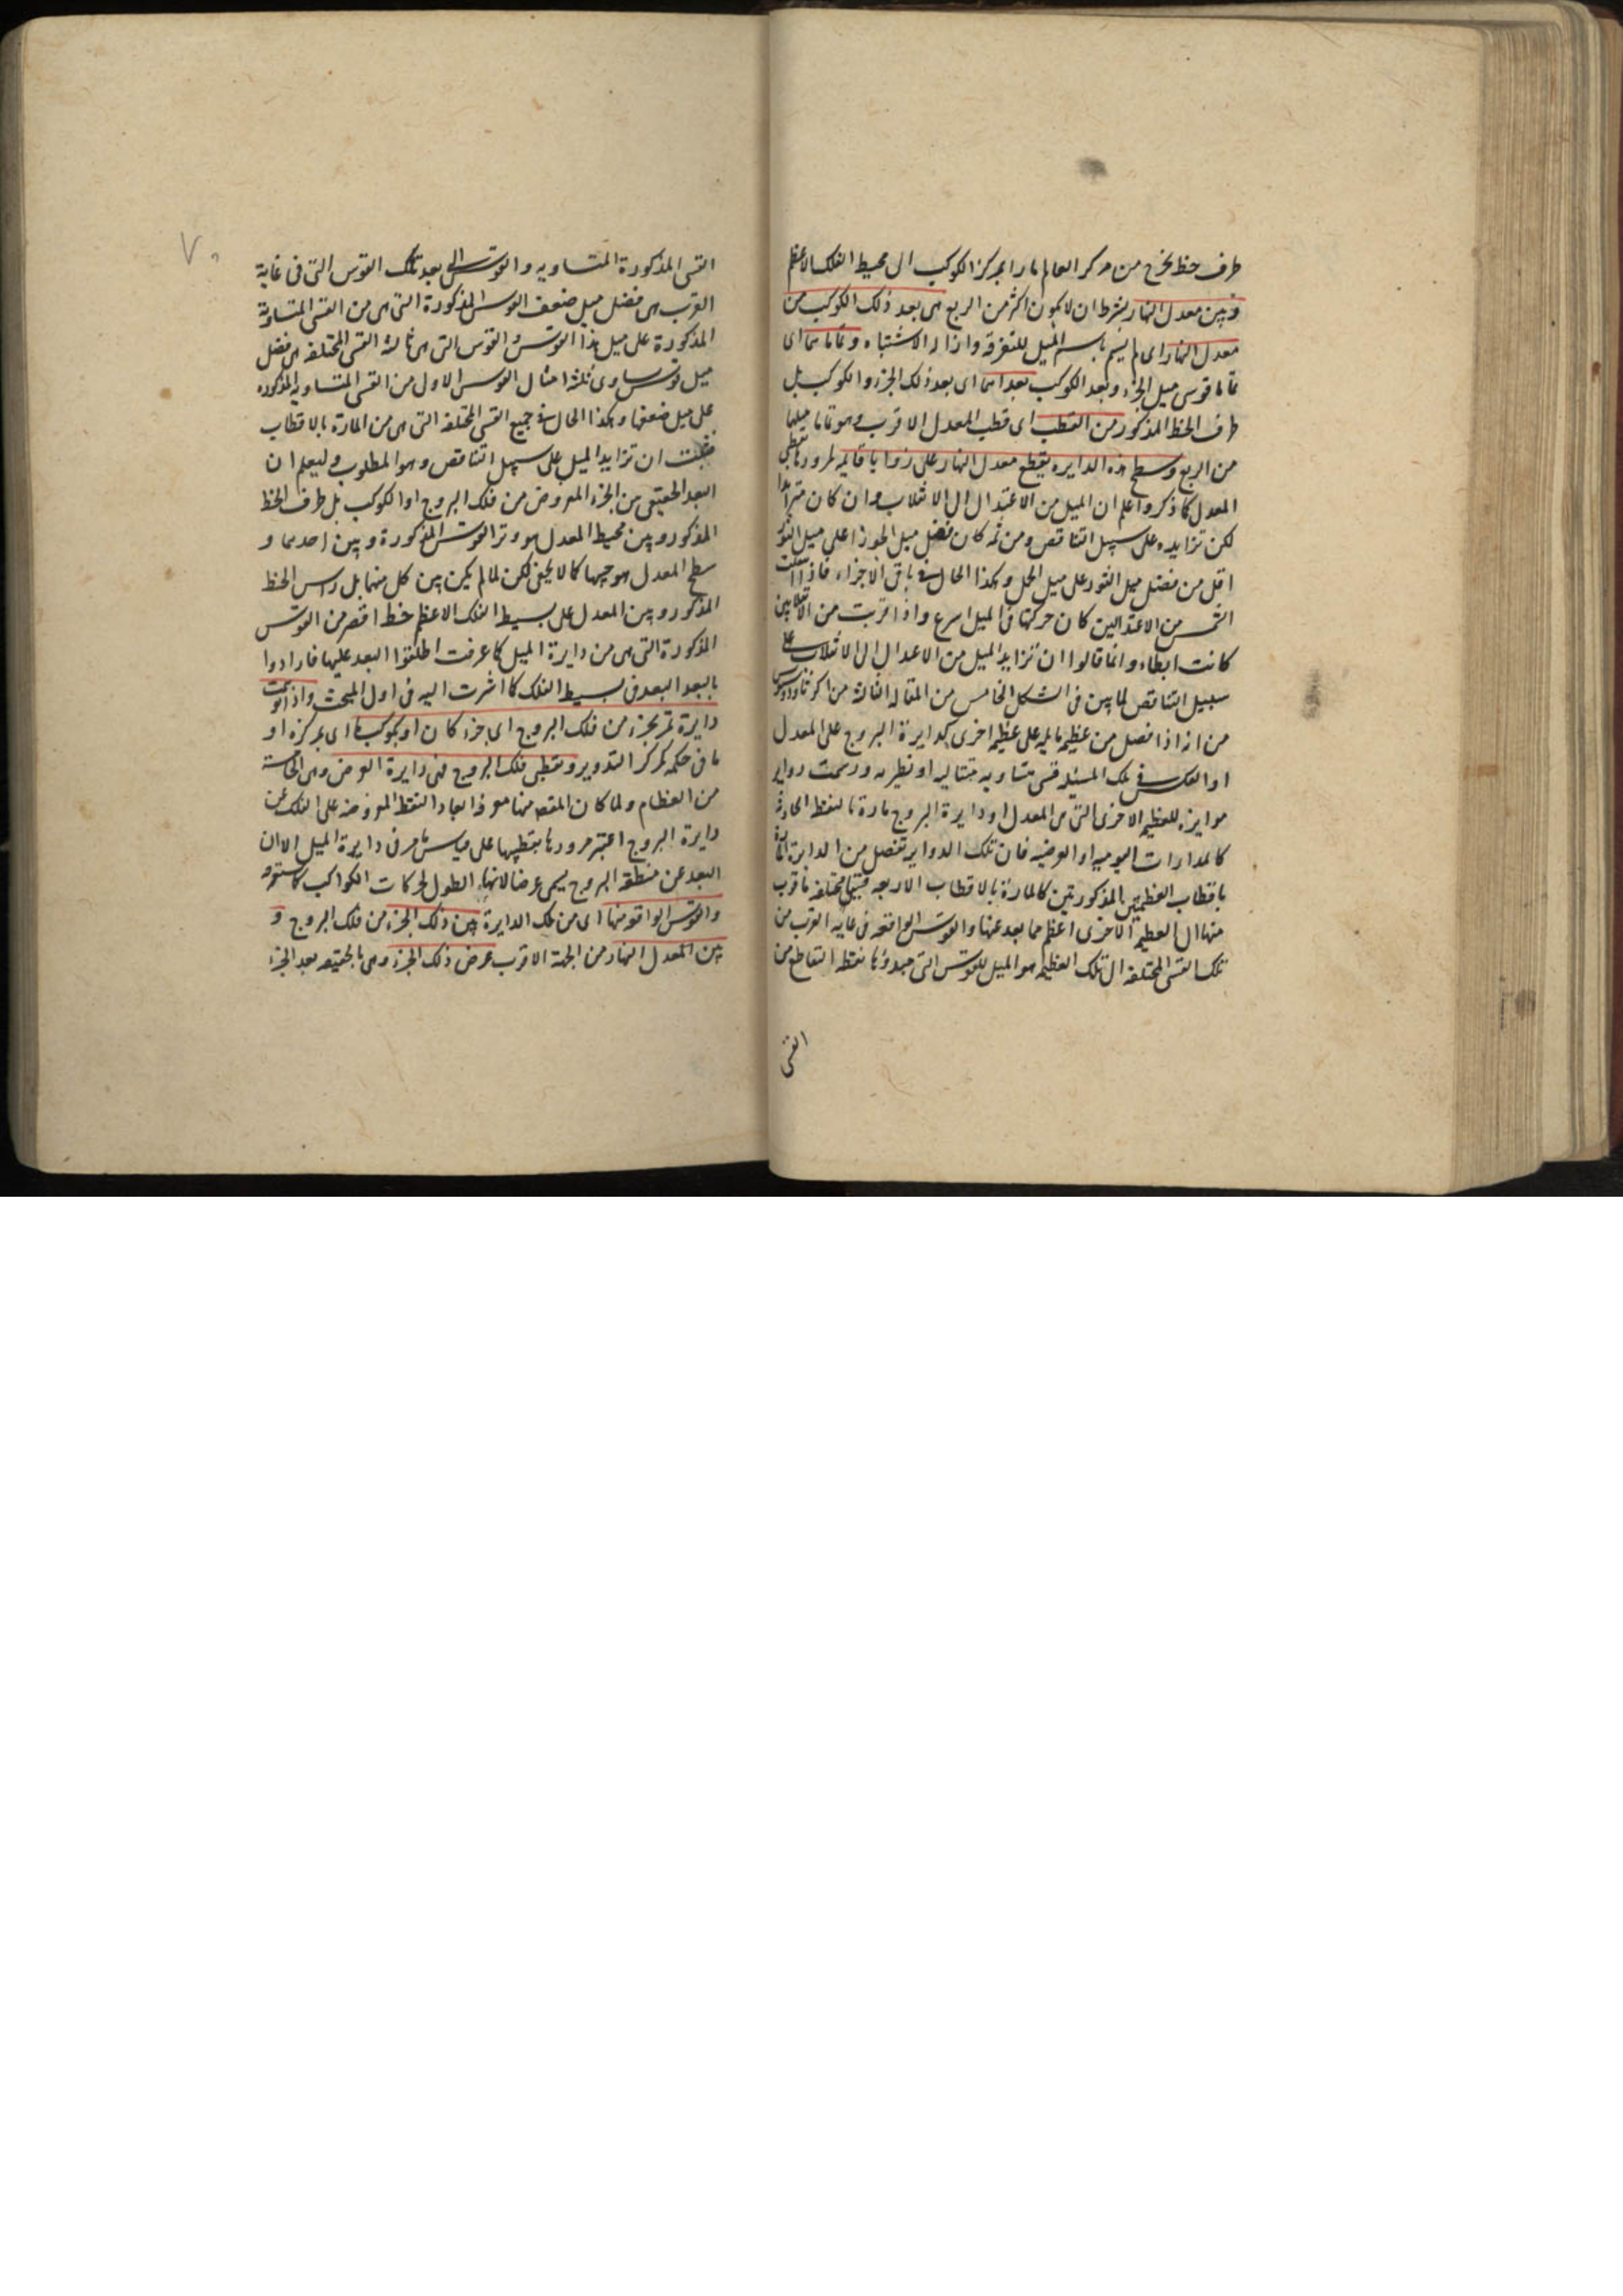 طرف خط يخرج من مركز العالم مارا بمركز الكوكب الى محيط الفلك الاعظم
وبين معدل النهار بشرط ان لا يكون اكثر من الربع هى بعد ذلك الكوكب من
معدل النهار اى لم يسم باسم الميل للتفرقه وازاله الاشتباه وتماماهما اى
تماما قوس ميل الجزء وبعد الكوكب بعداهما اى بعد ذلك الجزء والكوكب بل
طرف الخط المذكور من القطب اى قطب المعدل الاقرب وهو تماما ميلها
من الربع وسطح هذه الدايره يقطع معدل النهار على زوايا قائمه لمرورها بقطبى
المعدل كما ذكر واعلم ان الميل من الاعتدال الى الانقلاب وان كان متزايدا
لكن تزايده على سبيل التناقص ومن ثم كان فضل ميل الجوزا على ميل الثور
اقل من فضل ميل الثور على ميل الحمل وهكذا الحال فى باقى الاجزاء فاذا
الشمس من الاعتدالين كان حركتها فى الميل اسرع واذا قربت من الانقلابين
كانت ابطاء وانما قالوا ان تزايد الميل من الاعدال الى الانقلاب على
سبيل التناقص لما بين فى الشكل الخامس من المقاله الثالثة من اكر ثاودوسيوس
من انه اذا فصل من عظيمه مايله على عظيمه اخرى كدايرة البروج على المعدل
او العكس فى تلك المسئله قسى متساويه متتاليه او نظيره ورسمت دواير
موازيه للعظيمه الاخرى التى هى المعدل او دايرة البروج مارة بالنقط الحادثة
كالمدارات اليوميه او العرضيه فان تلك الدواير تفصل من الدايرة المارة
باقطاب العظيمتين المذكورتين كالمارة بالاقطاب الاربعه قسيا مختلفه ما قرب
منها الى العظيمه الاخرى اعظم مما بعد عنها والقوس الواقعه فى غايه القرب من
تلك القسى المختلفه الى تلك العظيمه هو الميل للقوس التى مبدؤها نقطه التقاطع من
القسى
القسى المذكورة المتساويه والقوس التى بعد تلك القوس التى فى غاية
القرب هى فضل ميل ضعف القوس المذكورة التى هى من القسى المتساوية
المذكورة على ميل هذا القوس والقوس التى هى ثالثة القسى المختلفه هى فضل
ميل قوس يساوى ثلثة امثال القوس الاولى من القسى المتساويه المذكوره
على ميل ضعفها وهكذا الحال فى جميع القسى المختلفه التى هى من المارة بالاقطاب
فثبت ان تزايد الميل على سبيل التناقص وهو المطلوب وليعلم ان
البعد الحقيقى بين الجزء المفروض من فلك البروج او الكوكب بل طرف الخط
المذكور وبين محيط المعدل هو وتر القوس المذكورة وبين احدهما و
سطح المعدل هو جيبها كما لا يخفى لكن لما لم يكن بين كل منهما بل راس الخط
المذكور وبين المعدل على بسيط الفلك الاعظم خط اقصر من القوس
المذكورة التى هى من دايرة الميل كما عرفت اطلقوا البعد عليها فارادوا
بالبعد البعد فى بسيط الفلك كما اشرت اليه فى اول المبحث واذا توهمت
دايرة تمر بجزء من فلك البروج اى جزء كان او بكوكب ما اى بمركزه او
ما فى حكمه كمركز التدوير وبقطبى فلك البروج فهى دايرة العرض وهى الخامسة
من العظام ولما كان المقصد منها معرفة ابعاد النقط المفروضه على الفلك عن
دايرة البروج اعتبر مرورها بقطبيها على قياس ما مر فى دايرة الميل الا ان
البعد عن منطقه البروج يسمى عرضا لانهاء الطول لحركات الكواكب كما ستعرفه
والقوس الواقعه منها اى من تلك الدايرة بين ذلك الجزء من فلك البروج و
بين المعدل النهار من الجهة الاقرب عرض ذلك الجزء وهى بالحقيقه بعد الجزء